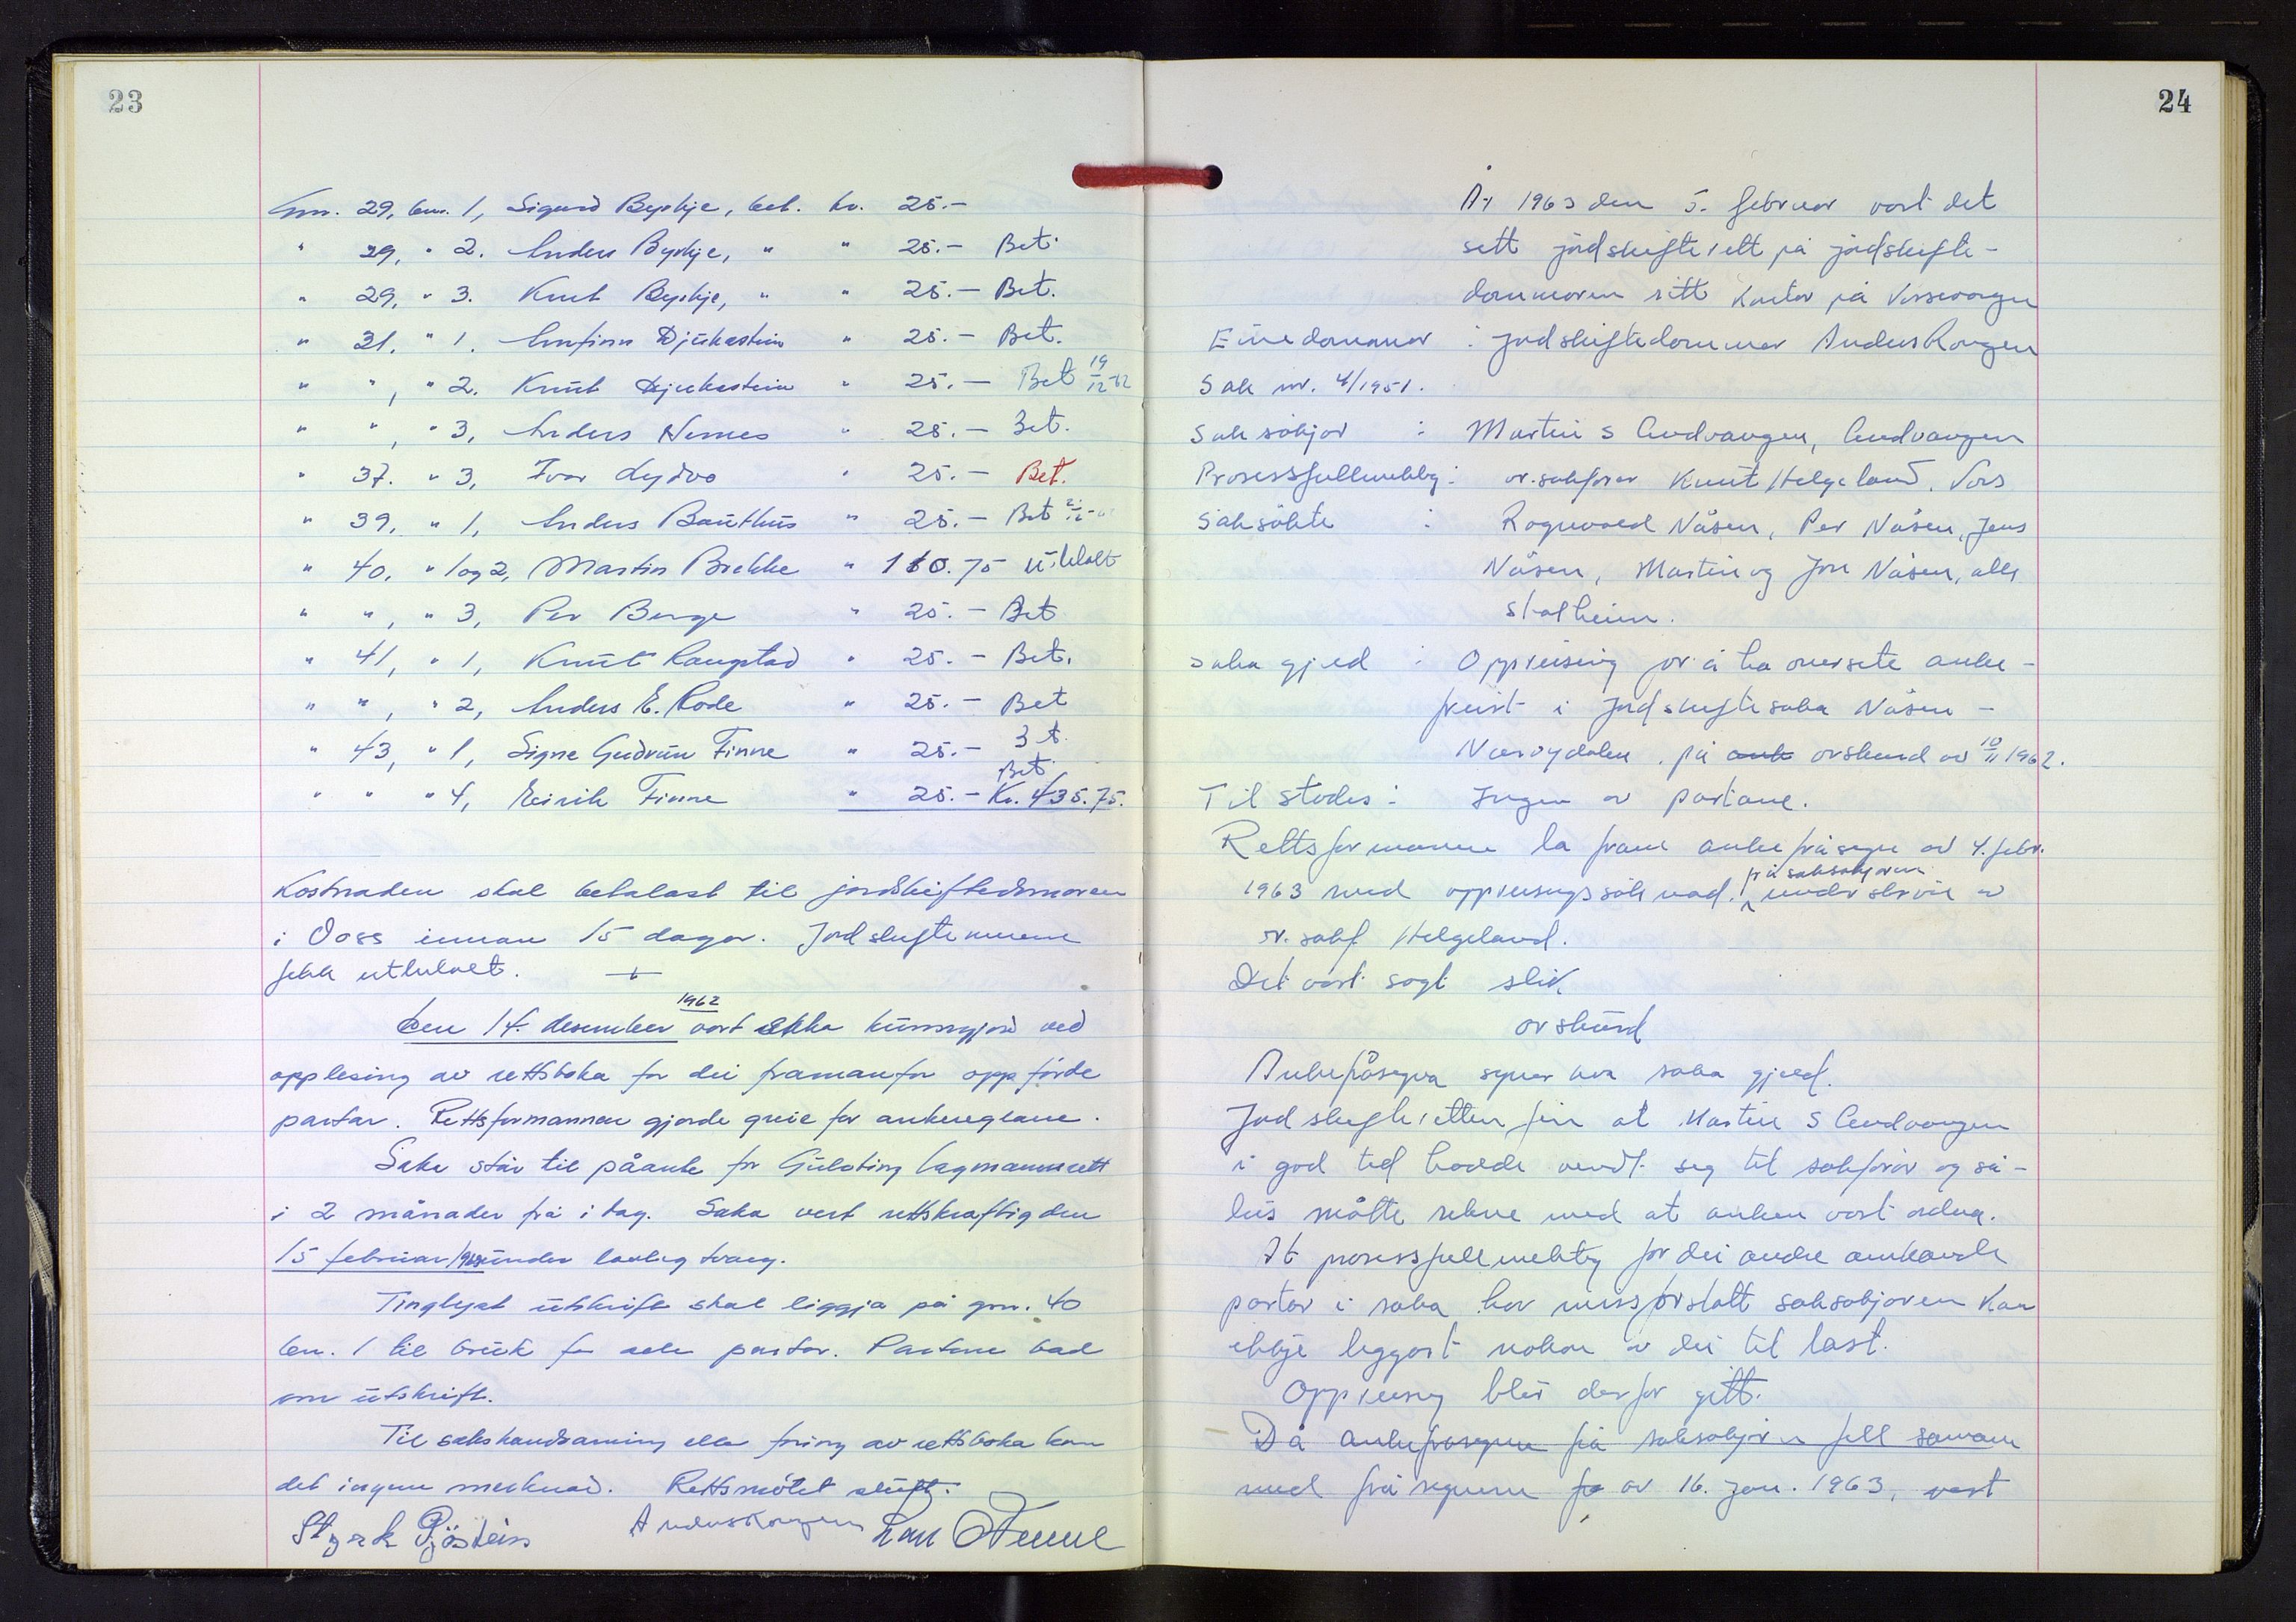 23
Gnr. 29, bnr. 1, Sigurd Byrkje, bet. kr. 25.-
" 29, " 2. Anders Byrkje, " " 25.- Bet.
" 29, " 3. Knut Byrkje, " " 25.- Bet.
" 31. " 1. Arnfinn Djukastein " 25.- Bet.
" ", " 2. Knut Djukastein " 25.- Bet 19/12-62
" ", " 3, Anders Nemes " 25.- Bet.
" 37. " 3, Ivar Lydvo " 25.- Bet.
" 39, " 1, Anders Bauthus " 25.- Bet
" 40, " 1 og 2, Martin Brekke " 110.75 utkl.
" ", " 3, Per Berge " 25.- Bet
" 41, " 1, Knut Raugstad " 25.- Bet.
" ", " 2, Anders E. Rode " 25.- Bet
" 43, " 1, Signe Gudrun Finne " 25.- Bet.
" " " 4, Eirik Finne " 25.- Bet Kr. 435.75.
Kostnaden skal betalast til jordskiftedomaren
i Voss innan 15 dagar. Jordskiftemennene
fekk utbetalt.
Den 14. desember 1962 vart sakka kunngjord ved
opplesing av rettsboka for dei framanfor oppførde
partar. Rettsformannen gjorde greie for ankereglane.
Saka står til påanke for Gulating lagmannsrett
i 2 månader frå i dag. Saka vert rettskraftig den
15 februar 1963 under lovleg tvang.
Tinglyst utskrift skal liggja på gnr. 40
bnr. 1 til bruk for alle partar. Partane bad
om utskrift.
Til sakshandsaming eller føring av rettsboka kom
det ingen merknad. Rettsmøtet slutt.
Styrk Gjøstein Anders Rongen Lars Finne
24
År 1963 den 5. februar vart det
sett jordskifterett på jordskifte-
dommaren sitt kontor på Vossevangen
Einedommar : Jordskiftedommar Anders Rongen
Sak nr. 4/1951.
Saksøkjar : Martin S Aadvangen, Aadvangen
Prosessfullmektig : or.sakførar Knut Helgeland, Voss
Saksøkte : Rognvald Nåsen, Per Nåsen, Jens
Nåsen, Martin og Jon Nåsen, alle
Stalheim.
Saka gjeld : Oppreising for å ha oversete anke-
frist i Jordskiftesaka Nåsen -
Nærøydalen, på ank orskurd av 10/11 1962.
Til stades : Ingen av partane.
Rettsformannen la fram ankefråsegn av 4. febr.
1963 med oppreisingssøknad frå saksøkjaren underskrive av
or. sakf Helgeland.
Det vart sagt slik
orskurd
Ankefråsegna syner kva saka gjeld.
Jordskifteretten finn at Martin S Aadvangen
i god tid hadde vendt seg til sakførar og så-
leis måtte rekne med at anken vart ordna.
At prosessfullmektig for dei andre ankande
partar i saka har misforstått saksøkjaren kan
ikkje leggast nokon av dei til last.
Oppreising blir derfor gitt.
Då ankefråsegna frå saksøkjaren fell saman
med fråsegnene fo av 16. jan. 1963, vert